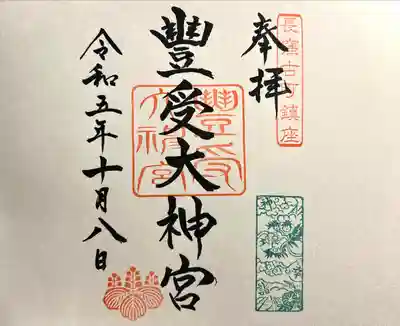 長窪古町鎮座
奉拝
豊受大神宮
豐受大神宮
令和五年十月八日